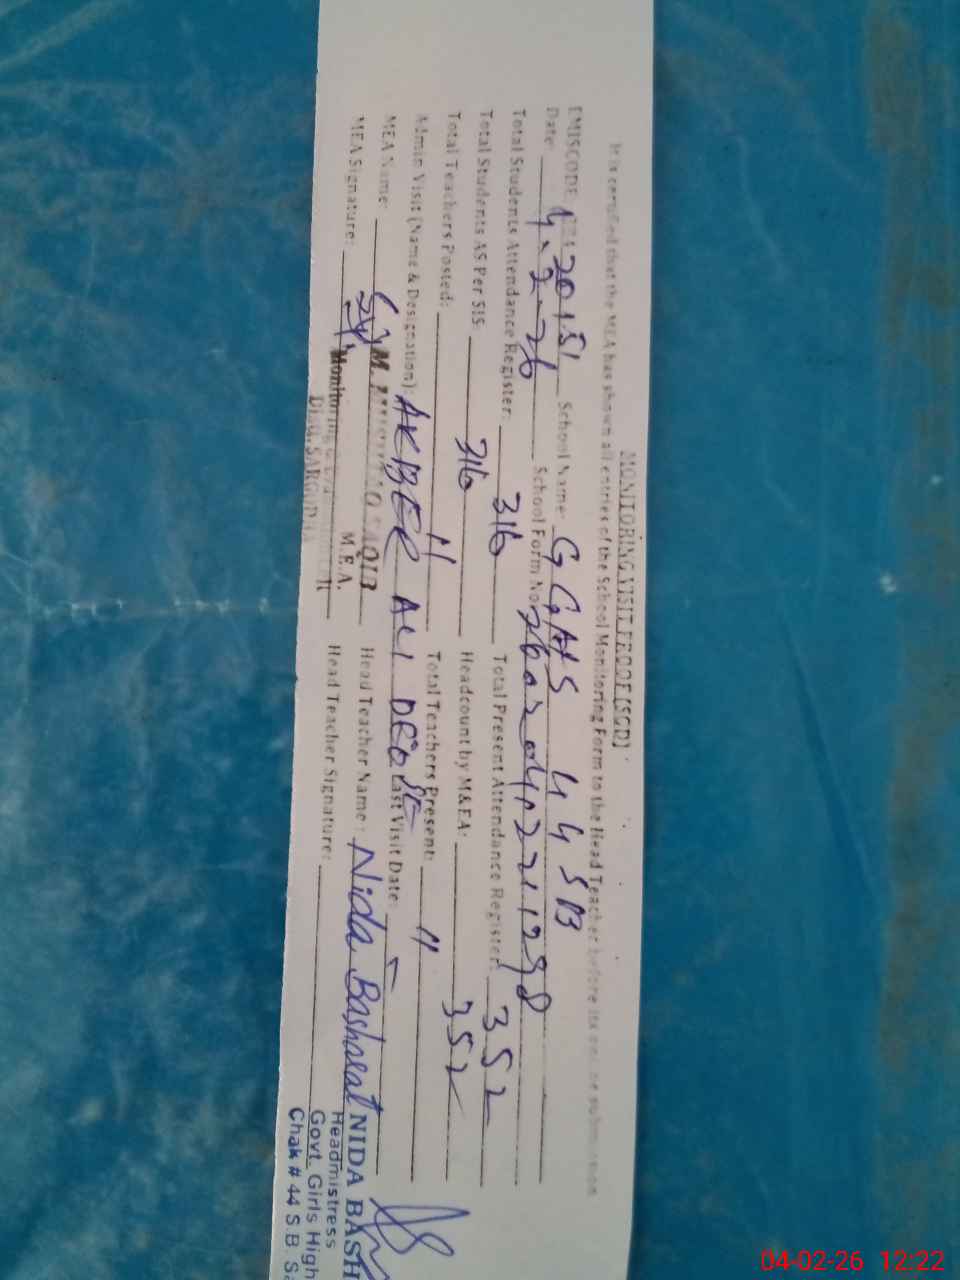 MONITORING VISIT PROOF (SGD)
It is certified that the MEA has shown all entries of the School Monitoring Form to the Head Teacher before its submission
EMISCODE School Name: GGHS 44 SB
Date: 4-2-26 School Form No
Total Students Attendance Register: 316 Total Present Attendance Register: 352
Total Students AS Per SIS: 316 Headcount by M&EA: 352
Total Teachers Posted: 11 Total Teachers Present: 11
Admin Visit (Name & Designation): AKBER ALI DEO Last Visit Date:
MEA Name: M. SAQIB Head Teacher Name: Nida Basharat
M.E.A.
MEA Signature: Head Teacher Signature:
Monitoring
Distt. SARGODHA
NIDA BASH
Headmistress
Govt. Girls High
Chak # 44 S.B. Sa
04-02-26 12:22